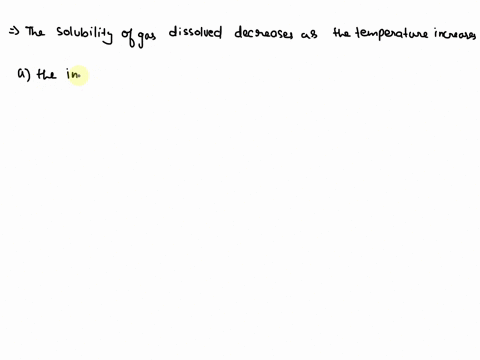 => The solubility of gas dissolved decreases as the temperature increases
a) the in